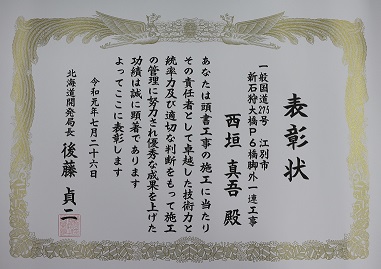 表彰状
一般国道275号 江別市
新石狩大橋P6橋脚外一連工事
西垣 真吾 殿
あなたは頭書工事の施工に当たり
その責任者として卓越した技術力と
統率力及び適切な判断をもって施工
の管理に努力され優秀な成果を上げた
功績は誠に顕著であります
よってここに表彰します
令和元年七月二十六日
北海道開発局長 後藤 貞二